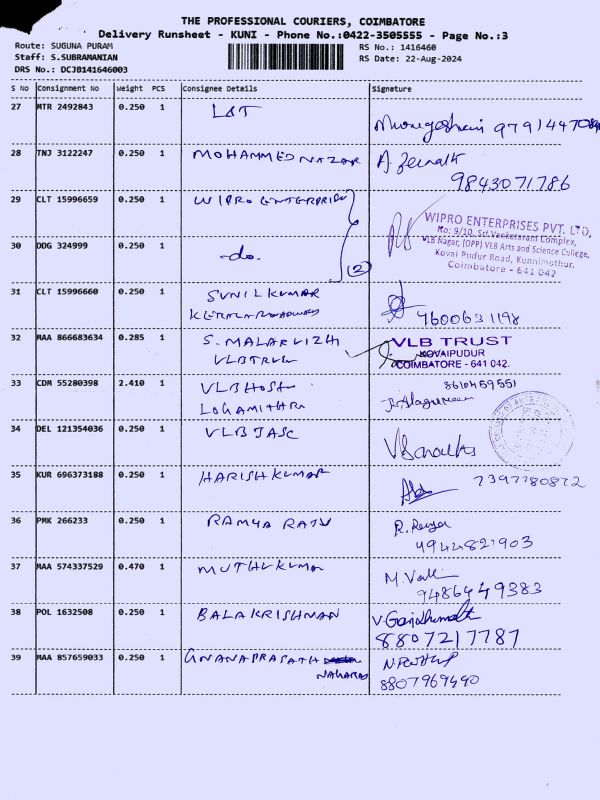 THE PROFESSIONAL COURIERS, COIMBATORE
Delivery Runsheet - KUNI - Phone No.:0422-3505555 - Page No.:3
Route: SUGUNA PURAM
Staff: S.SUBRAMANIAN
DRS No.: DCJB141646003
RS No.: 1416460
RS Date: 22-Aug-2024
S No Consignment No Weight PCS Consignee Details Signature
27 MTR 2492843 0.250 1 L&T
9791447084
28 TNJ 3122247 0.250 1 MOHAMMED NAZAR
9843071786
29 CLT 15996659 0.250 1 WIPRO ENTERPRISES
WIPRO ENTERPRISES PVT. LTD,
No: 9/10, Sri Venketaram Complex,
VLB Nagar, (OPP) VLB Arts and Science College,
Kovai Pudur Road, Kunnimuthur,
Coimbatore - 641 042
30 DDG 324999 0.250 1 -do-
2
31 CLT 15996660 0.250 1 SUNIL KUMAR
KERALA ROADWAYS
9600631198
32 MAA 866683634 0.285 1 S. MALARVIZH
VLB TRUST
VLB TRUST
KOVAIPUDUR
COIMBATORE - 641 042.
33 CDM 55280398 2.410 1 VLB HOST
LOGAMITHRA
8610459551
34 DEL 121354036 0.250 1 VLB JASC
35 KUR 696373188 0.250 1 HARISH KUMAR
7397780872
36 PMK 266233 0.250 1 RAMYA RAJU
R. Ramya
4944821903
37 MAA 574337529 0.470 1 MUTHUKUMA
M. Valli
9486449383
38 POL 1632508 0.250 1 BALAKRISHNAN
8807217787
39 MAA 857659033 0.250 1 GNANAPRASATH
NAGARAJ
8807969490